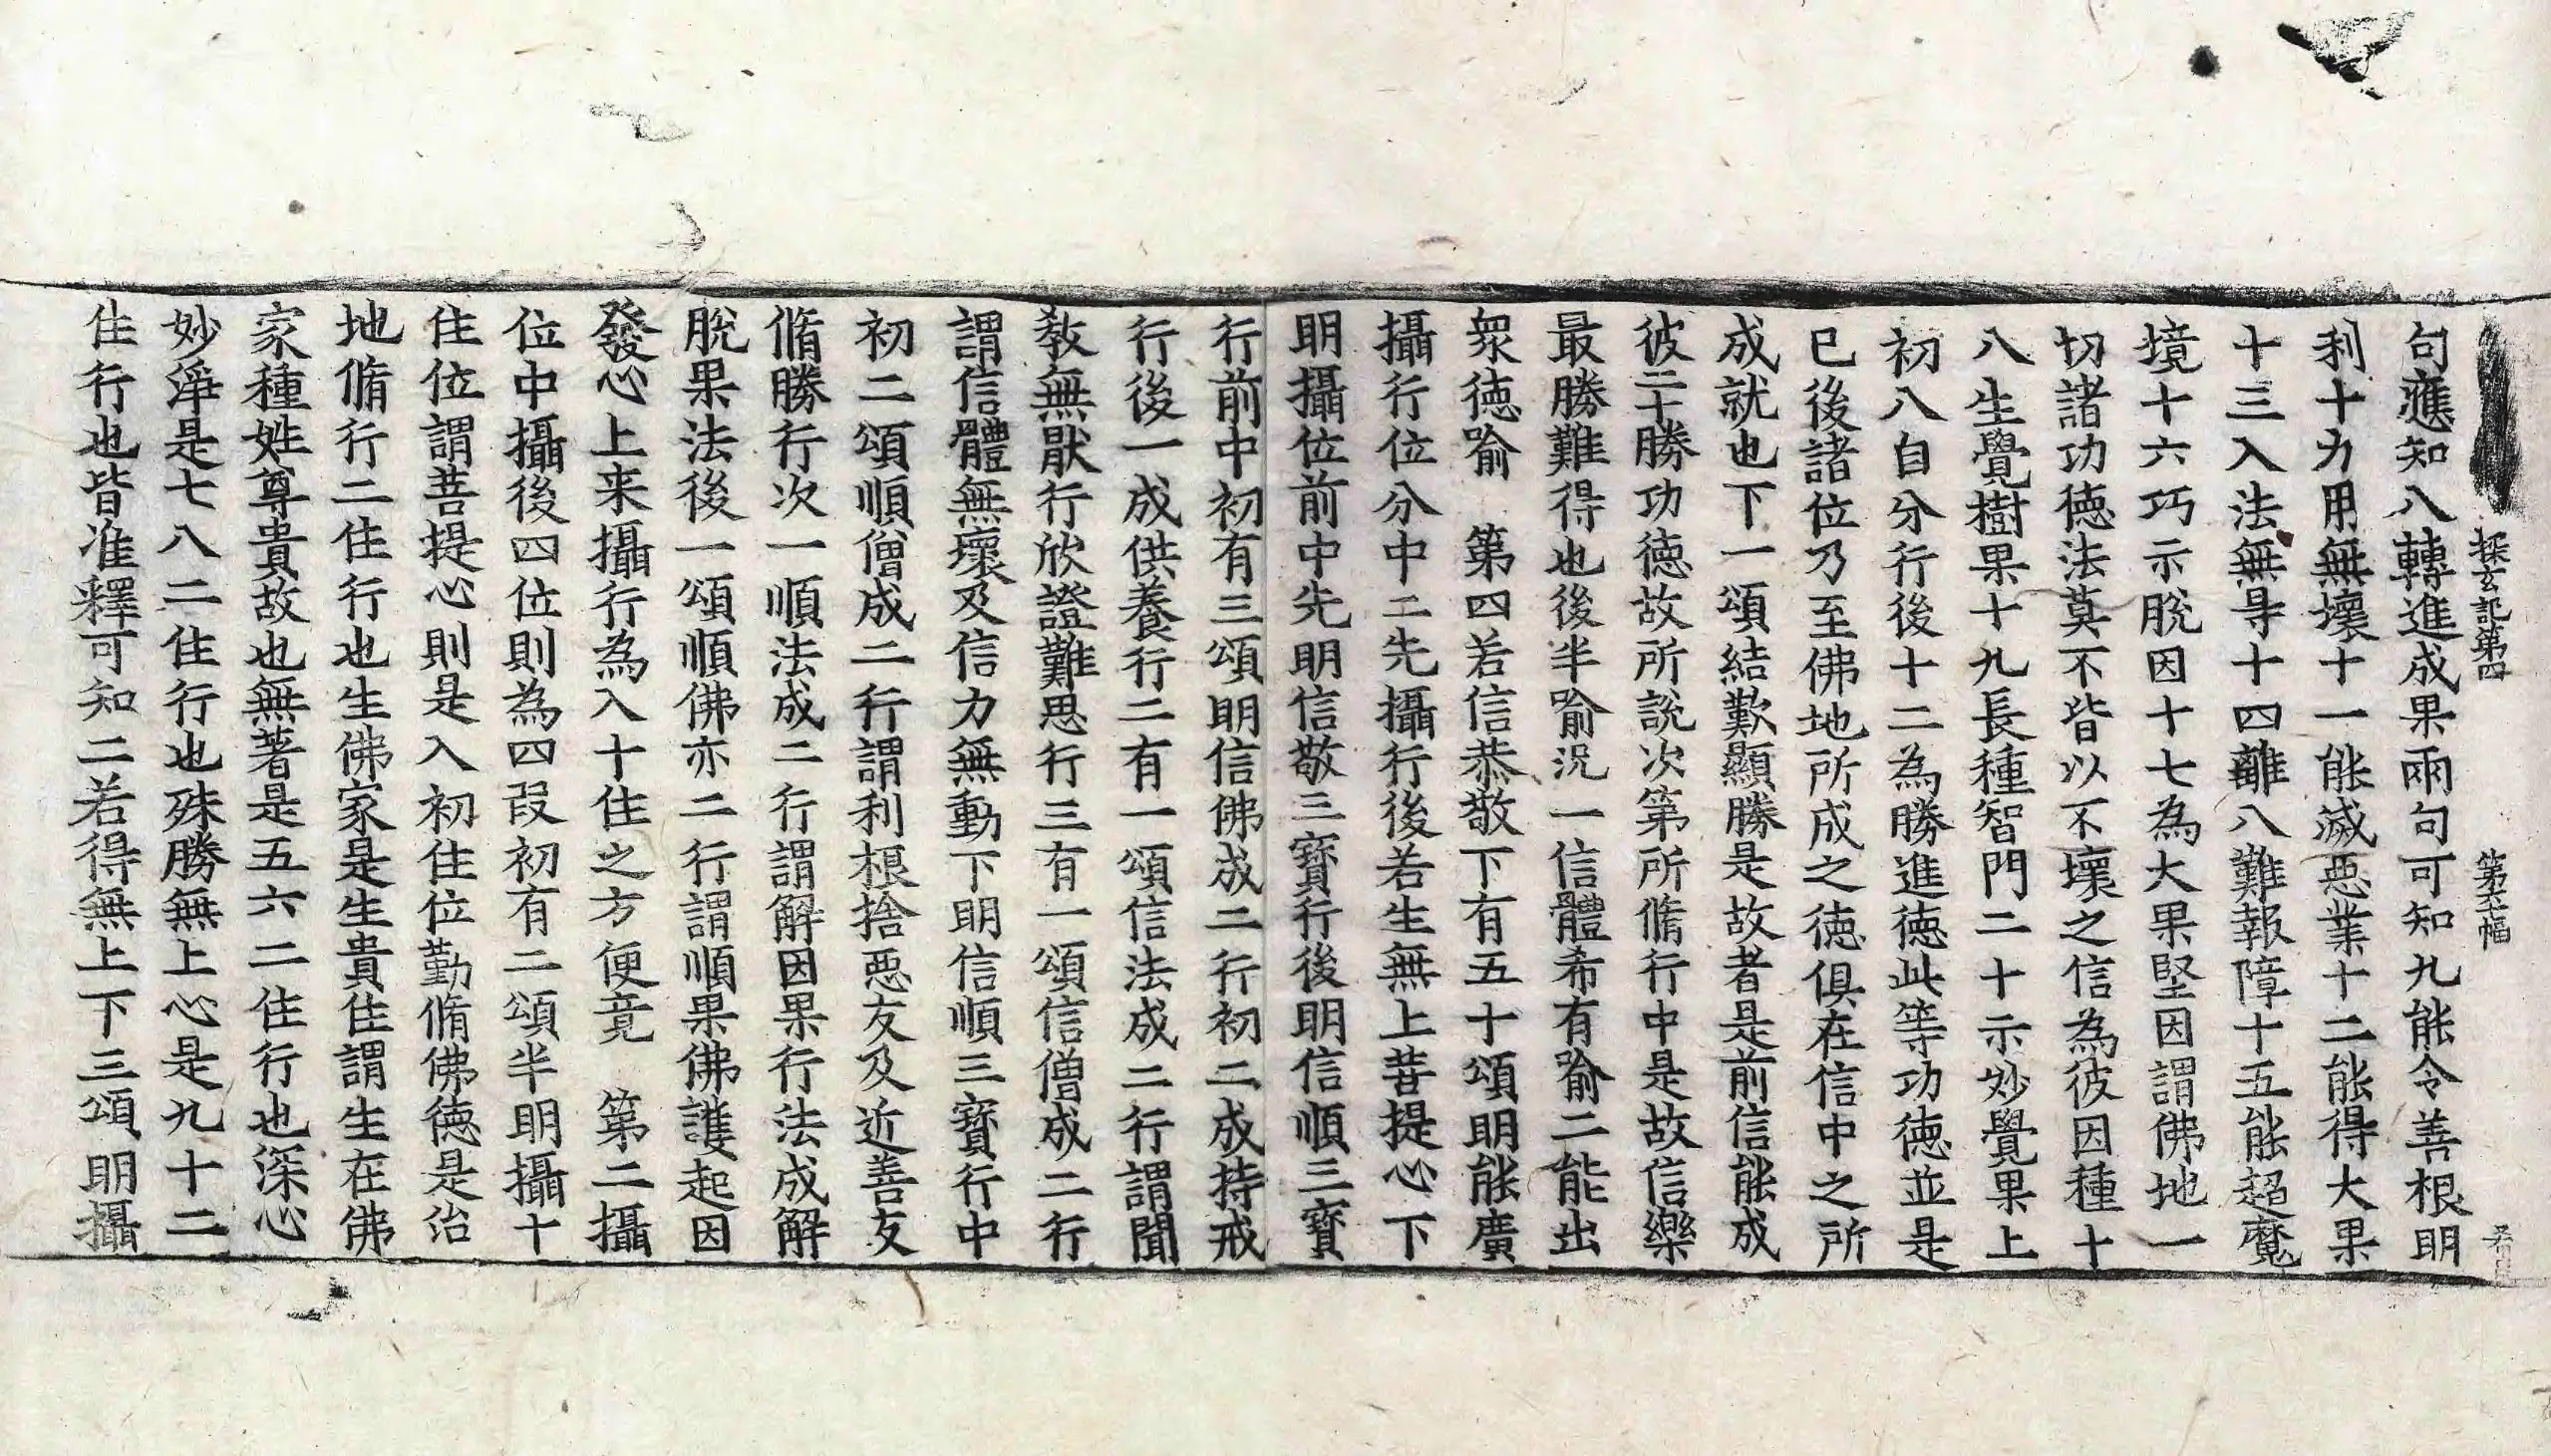 探玄記第四　第六幅
句應知八轉進成果兩句可知九能令善根明
利十力用無壞十一能滅惡業十二能得大果
十三入法無㝵十四離八難報障十五能超魔
境十六巧示脫因十七為大果堅因謂佛地一
切諸功德法莫不皆以不壞之信為彼因種十
八生覺樹果十九長種智門二十示妙覺果上
初八自分行後十二為勝進德此等功德並是
已後諸位乃至佛地所成之德俱在信中之所
成就也下一頌結歎顯勝是故者是前信能成
彼二十勝功德故所說次第所脩行中是故信樂
最勝難得也後半喻況一信體希有喻二能出
衆德喻　第四若信恭敬下有五十頌明能廣
攝行位分中二先攝行後若生無上菩提心下
明攝位前中先明信敬三寶行後明信順三寶
行前中初有三頌明信佛成二行初二成持戒
行後一成供養行二有一頌信法成二行謂聞
教無猒行欣證難思行三有一頌信僧成二行
謂信體無壞及信力無動下明信順三寶行中
初二頌順僧成二行謂利根捨惡友及近善友
脩勝行次一順法成二行謂解因果行法成解
脫果法後一頌順佛亦二行謂順果佛護起因
發心上来攝行為入十住之方便竟　第二攝
位中攝後四位則為四段初有二頌半明攝十
住位謂菩提心則是入初住位勤脩佛德是治
地脩行二住行也生佛家是生貴住謂生在佛
家種姓尊貴故也無著是五六二住行也深心
妙淨是七八二住行也殊勝無上心是九十二
住行也皆准釋可知二若得無上下三頌明攝